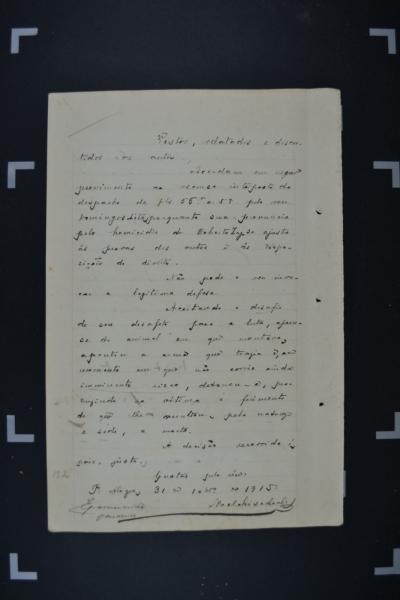 Vistos, relatados e discu-
tidos os autos,
Accordam em negar
provimento ao recurso interposto do
despacho de fls 55 a 57 pelo reu
Domingos porquanto sua pronuncia
pelo homicidio de se ajusta
ás provas dos autos e ás dispo-
sições de direito.
Não pode o reu invo-
car a legitima defesa.
Acceitando o desafio
de seu desafeto para a luta, apeou-
se do animal em que montava,
apontou a arma que trazia e, em
momento em que não corria ainda
imminente risco, detonou-a, pro-
duzindo na victima o ferimento
de que lhe resultou, pela natureza
e séde, a morte.
A decisão recorrida é,
pois, justa.
Custas pelo réu.
P. Alegre, 31 de de 1915